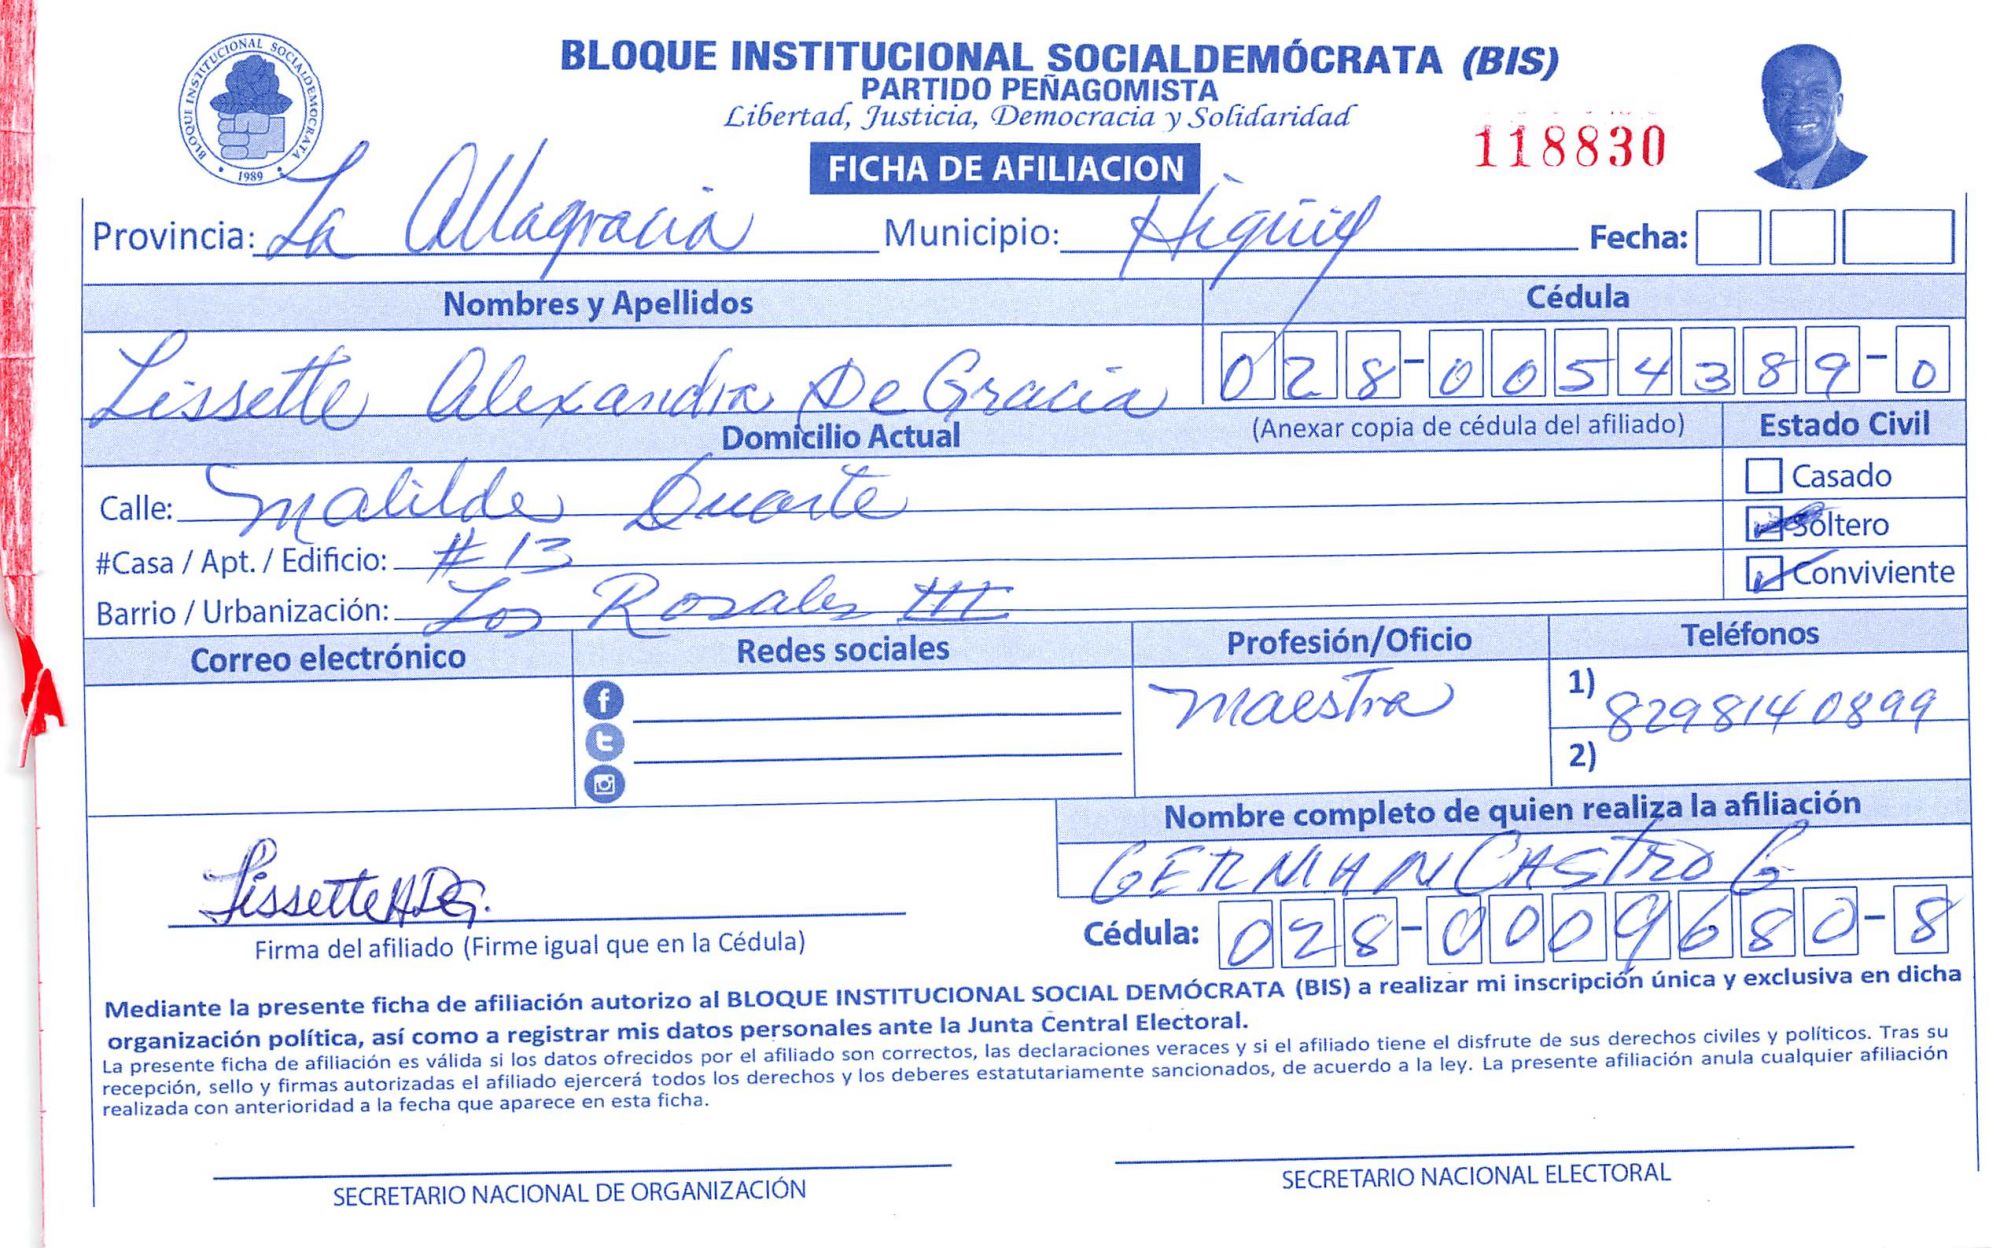 BLOQUE INSTITUCIONAL SOCIALDEMÓCRATA (BIS)
PARTIDO PEÑAGOMISTA
Libertad, Justicia, Democracia y Solidaridad
BLOQUE INSTITUCIONAL SOCIALDEMOCRATA
1989
118830
FICHA DE AFILIACION
Provincia: La Altagracia Municipio: Higüey Fecha:
Nombres y Apellidos Cédula
Lissette Alexandra De Gracia 028-0054389-0
Domicilio Actual (Anexar copia de cédula del afiliado) Estado Civil
Calle: Matilde Duarte Casado
#Casa / Apt. / Edificio: # 13 Soltero
Barrio / Urbanización: Los Rosales III Conviviente
Correo electrónico Redes sociales Profesión/Oficio Teléfonos
Maestra 1) 8298140899
2)
Nombre completo de quien realiza la afiliación
GERMAN CASTRO G
Lissette A D G.
Firma del afiliado (Firme igual que en la Cédula) Cédula: 028-0009680-8
Mediante la presente ficha de afiliación autorizo al BLOQUE INSTITUCIONAL SOCIAL DEMÓCRATA (BIS) a realizar mi inscripción única y exclusiva en dicha
organización política, así como a registrar mis datos personales ante la Junta Central Electoral.
La presente ficha de afiliación es válida si los datos ofrecidos por el afiliado son correctos, las declaraciones veraces y si el afiliado tiene el disfrute de sus derechos civiles y políticos. Tras su
recepción, sello y firmas autorizadas el afiliado ejercerá todos los derechos y los deberes estatutariamente sancionados, de acuerdo a la ley. La presente afiliación anula cualquier afiliación
realizada con anterioridad a la fecha que aparece en esta ficha.
SECRETARIO NACIONAL DE ORGANIZACIÓN SECRETARIO NACIONAL ELECTORAL